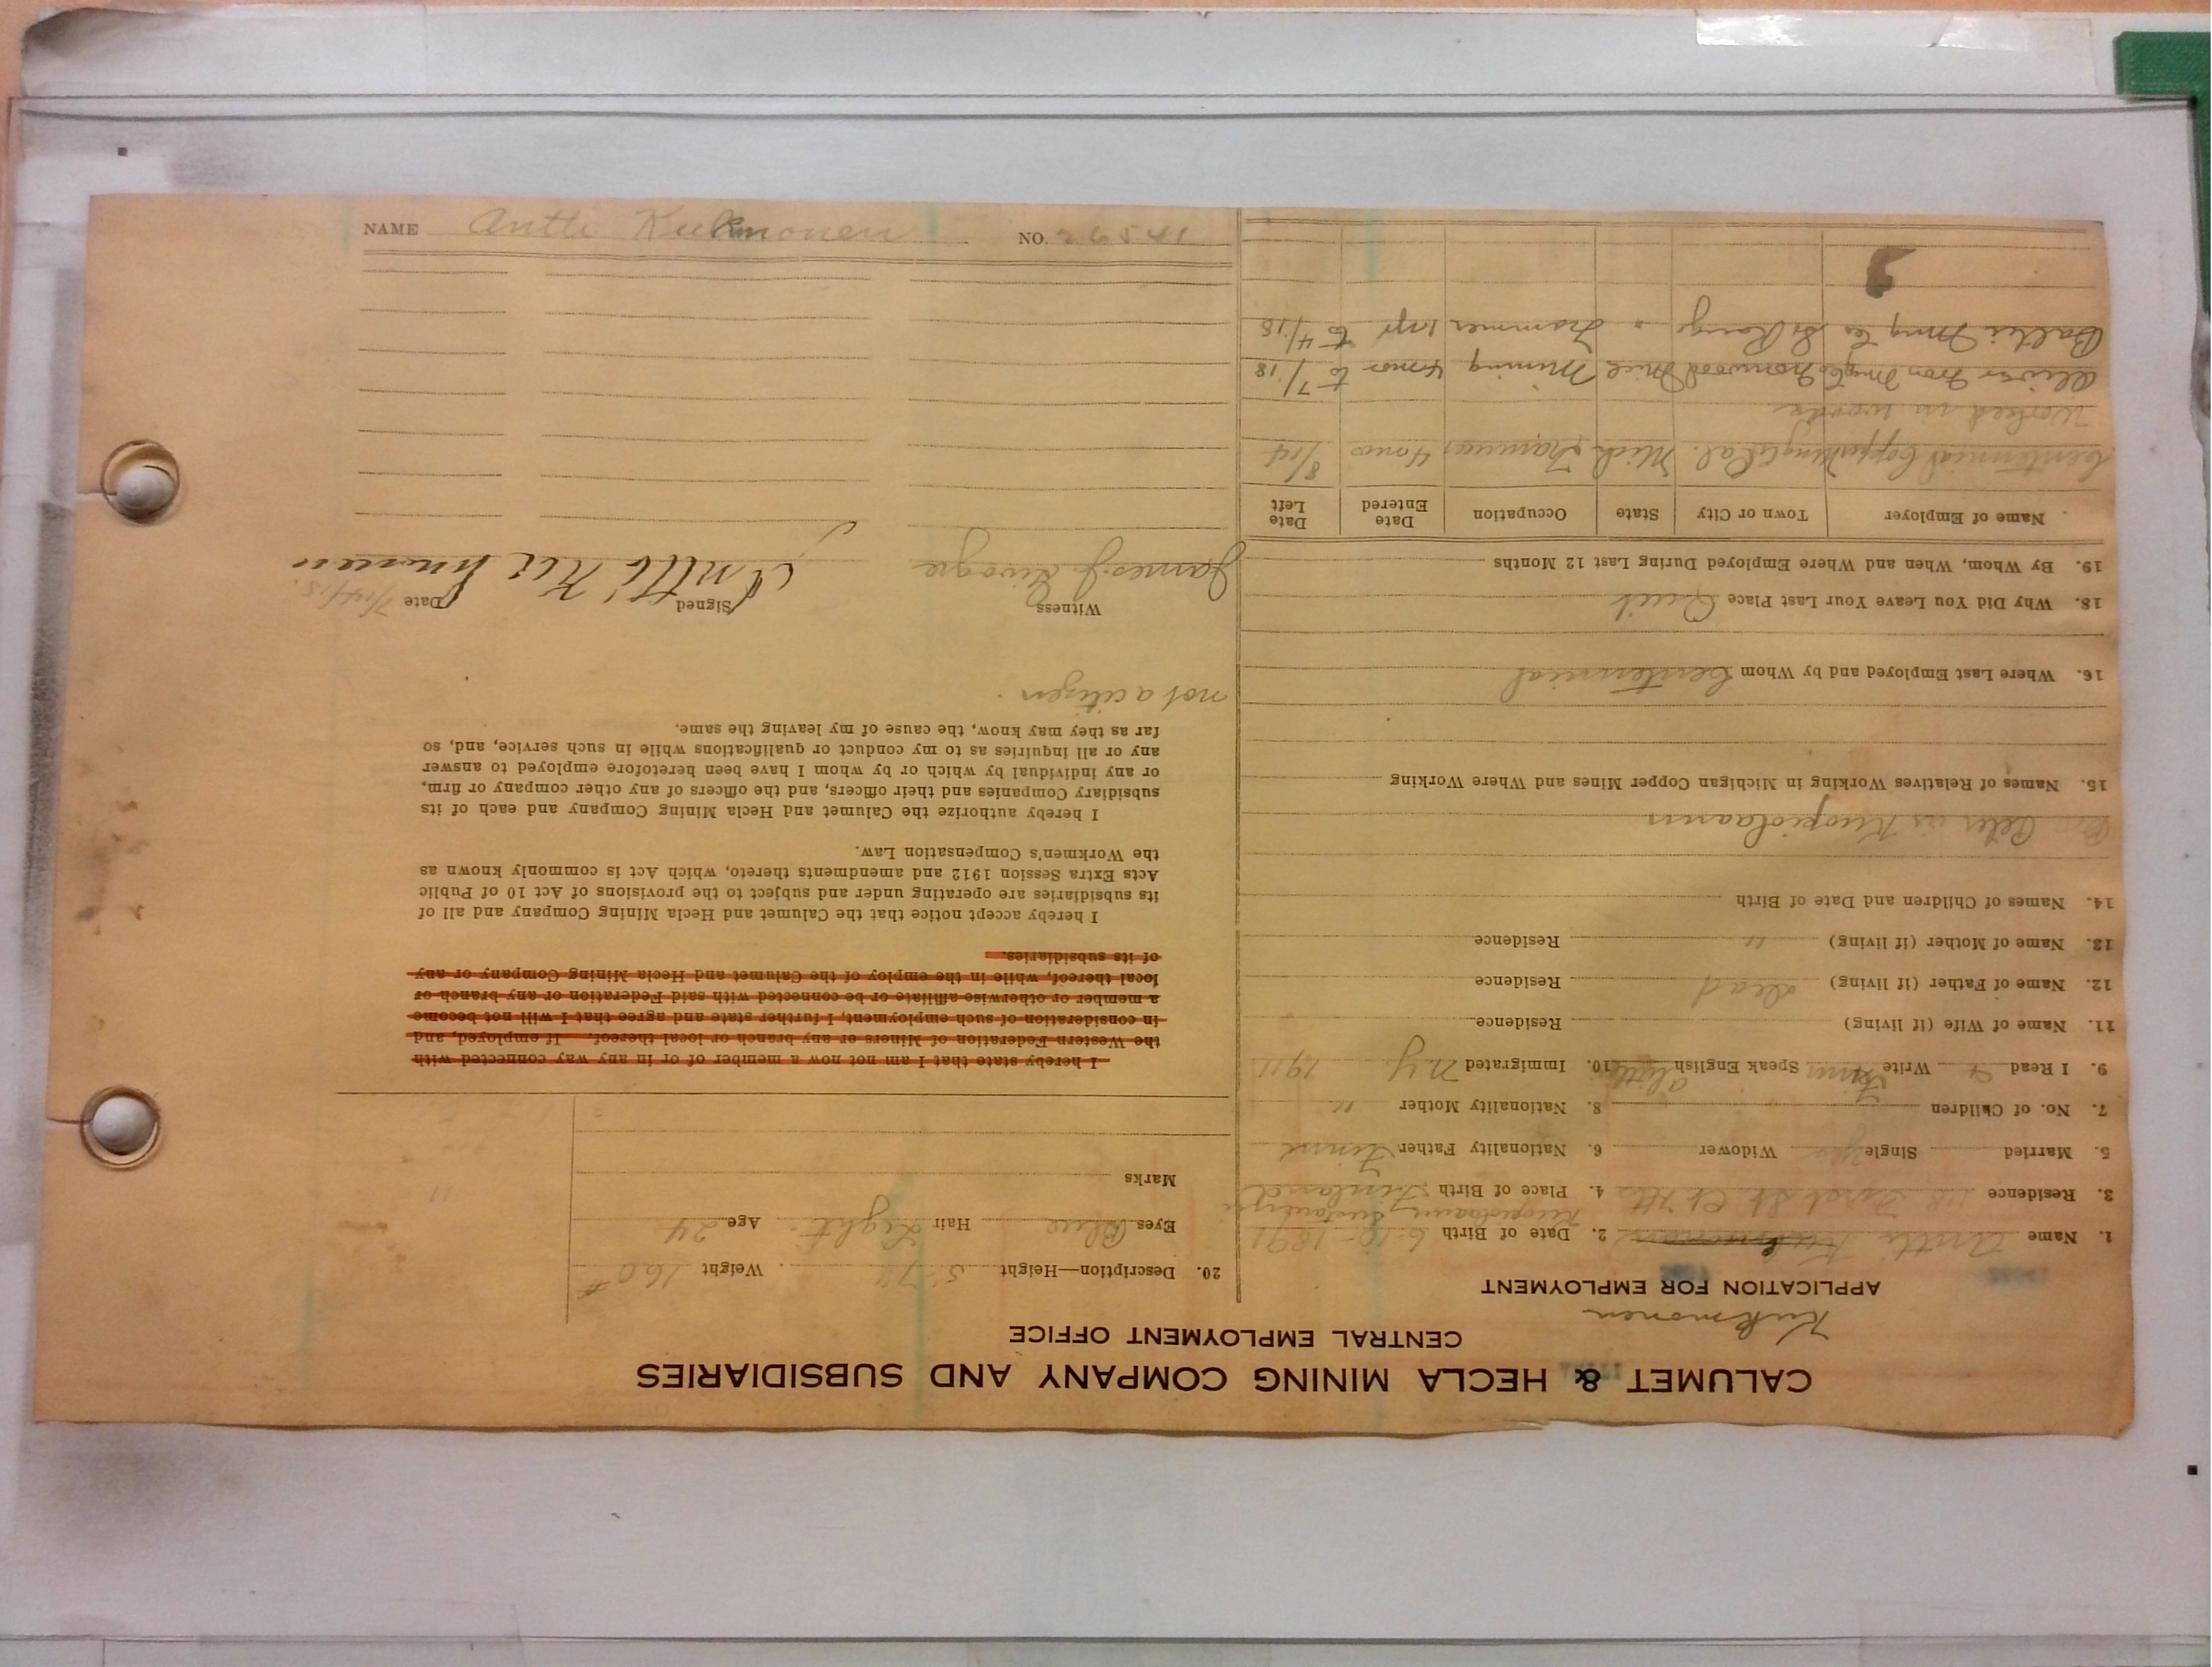 CALUMET & HECLA MINING COMPANY AND SUBSIDIARIES
CENTRAL EMPLOYMENT OFFICE
Kukmonen
APPLICATION FOR EMPLOYMENT
1. Name Antti 2. Date of Birth 6-10-1891
3. Residence St. 4. Place of Birth Finland
5. Married Single yes Widower 6. Nationality Father Finn
7. No. of Children 8. Nationality Mother "
9. I Read Write Finn Speak English a little 10. Immigrated N.Y. 1911
11. Name of Wife (if living) Residence
12. Name of Father (if living) dead Residence
13. Name of Mother (if living) " Residence
14. Names of Children and Date of Birth
Peter in Kuopiolaani
15. Names of Relatives Working in Michigan Copper Mines and Where Working
16. Where Last Employed and by Whom Centennial
18. Why Did You Leave Your Last Place Quit
19. By Whom, When and Where Employed During Last 12 Months
Name of Employer Town or City State Occupation Date Entered Date Left
Centennial Copper Mng Co Cal. Mich Trammer 4 mos 8/14
Worked in woods
Oliver Iron Mng Co Ironwood Mich Mining 4 mos to 7/18
Baltic Mng Co So Range " Trammer 1 yr to 4/18
20. Description—Height 5' 7 Weight 160#
Eyes Blue Hair Light Age 24
Marks
I hereby state that I am not now a member of or in any way connected with
the Western Federation of Miners or any branch or local thereof. If employed, and
in consideration of such employment, I further state and agree that I will not become
a member or otherwise affiliate or be connected with said Federation or any branch or
local thereof, while in the employ of the Calumet and Hecla Mining Company or any
of its subsidiaries.
I hereby accept notice that the Calumet and Hecla Mining Company and all of
its subsidiaries are operating under and subject to the provisions of Act 10 of Public
Acts Extra Session 1912 and amendments thereto, which Act is commonly known as
the Workmen's Compensation Law.
I hereby authorize the Calumet and Hecla Mining Company and each of its
subsidiary Companies and their officers, and the officers of any other company or firm,
or any individual by which or by whom I have been heretofore employed to answer
any or all inquiries as to my conduct or qualifications while in such service, and, so
far as they may know, the cause of my leaving the same.
not a citizen.
Witness Signed Date 7/14/15.
James J.
NAME Antti Kukmonen NO. 26541